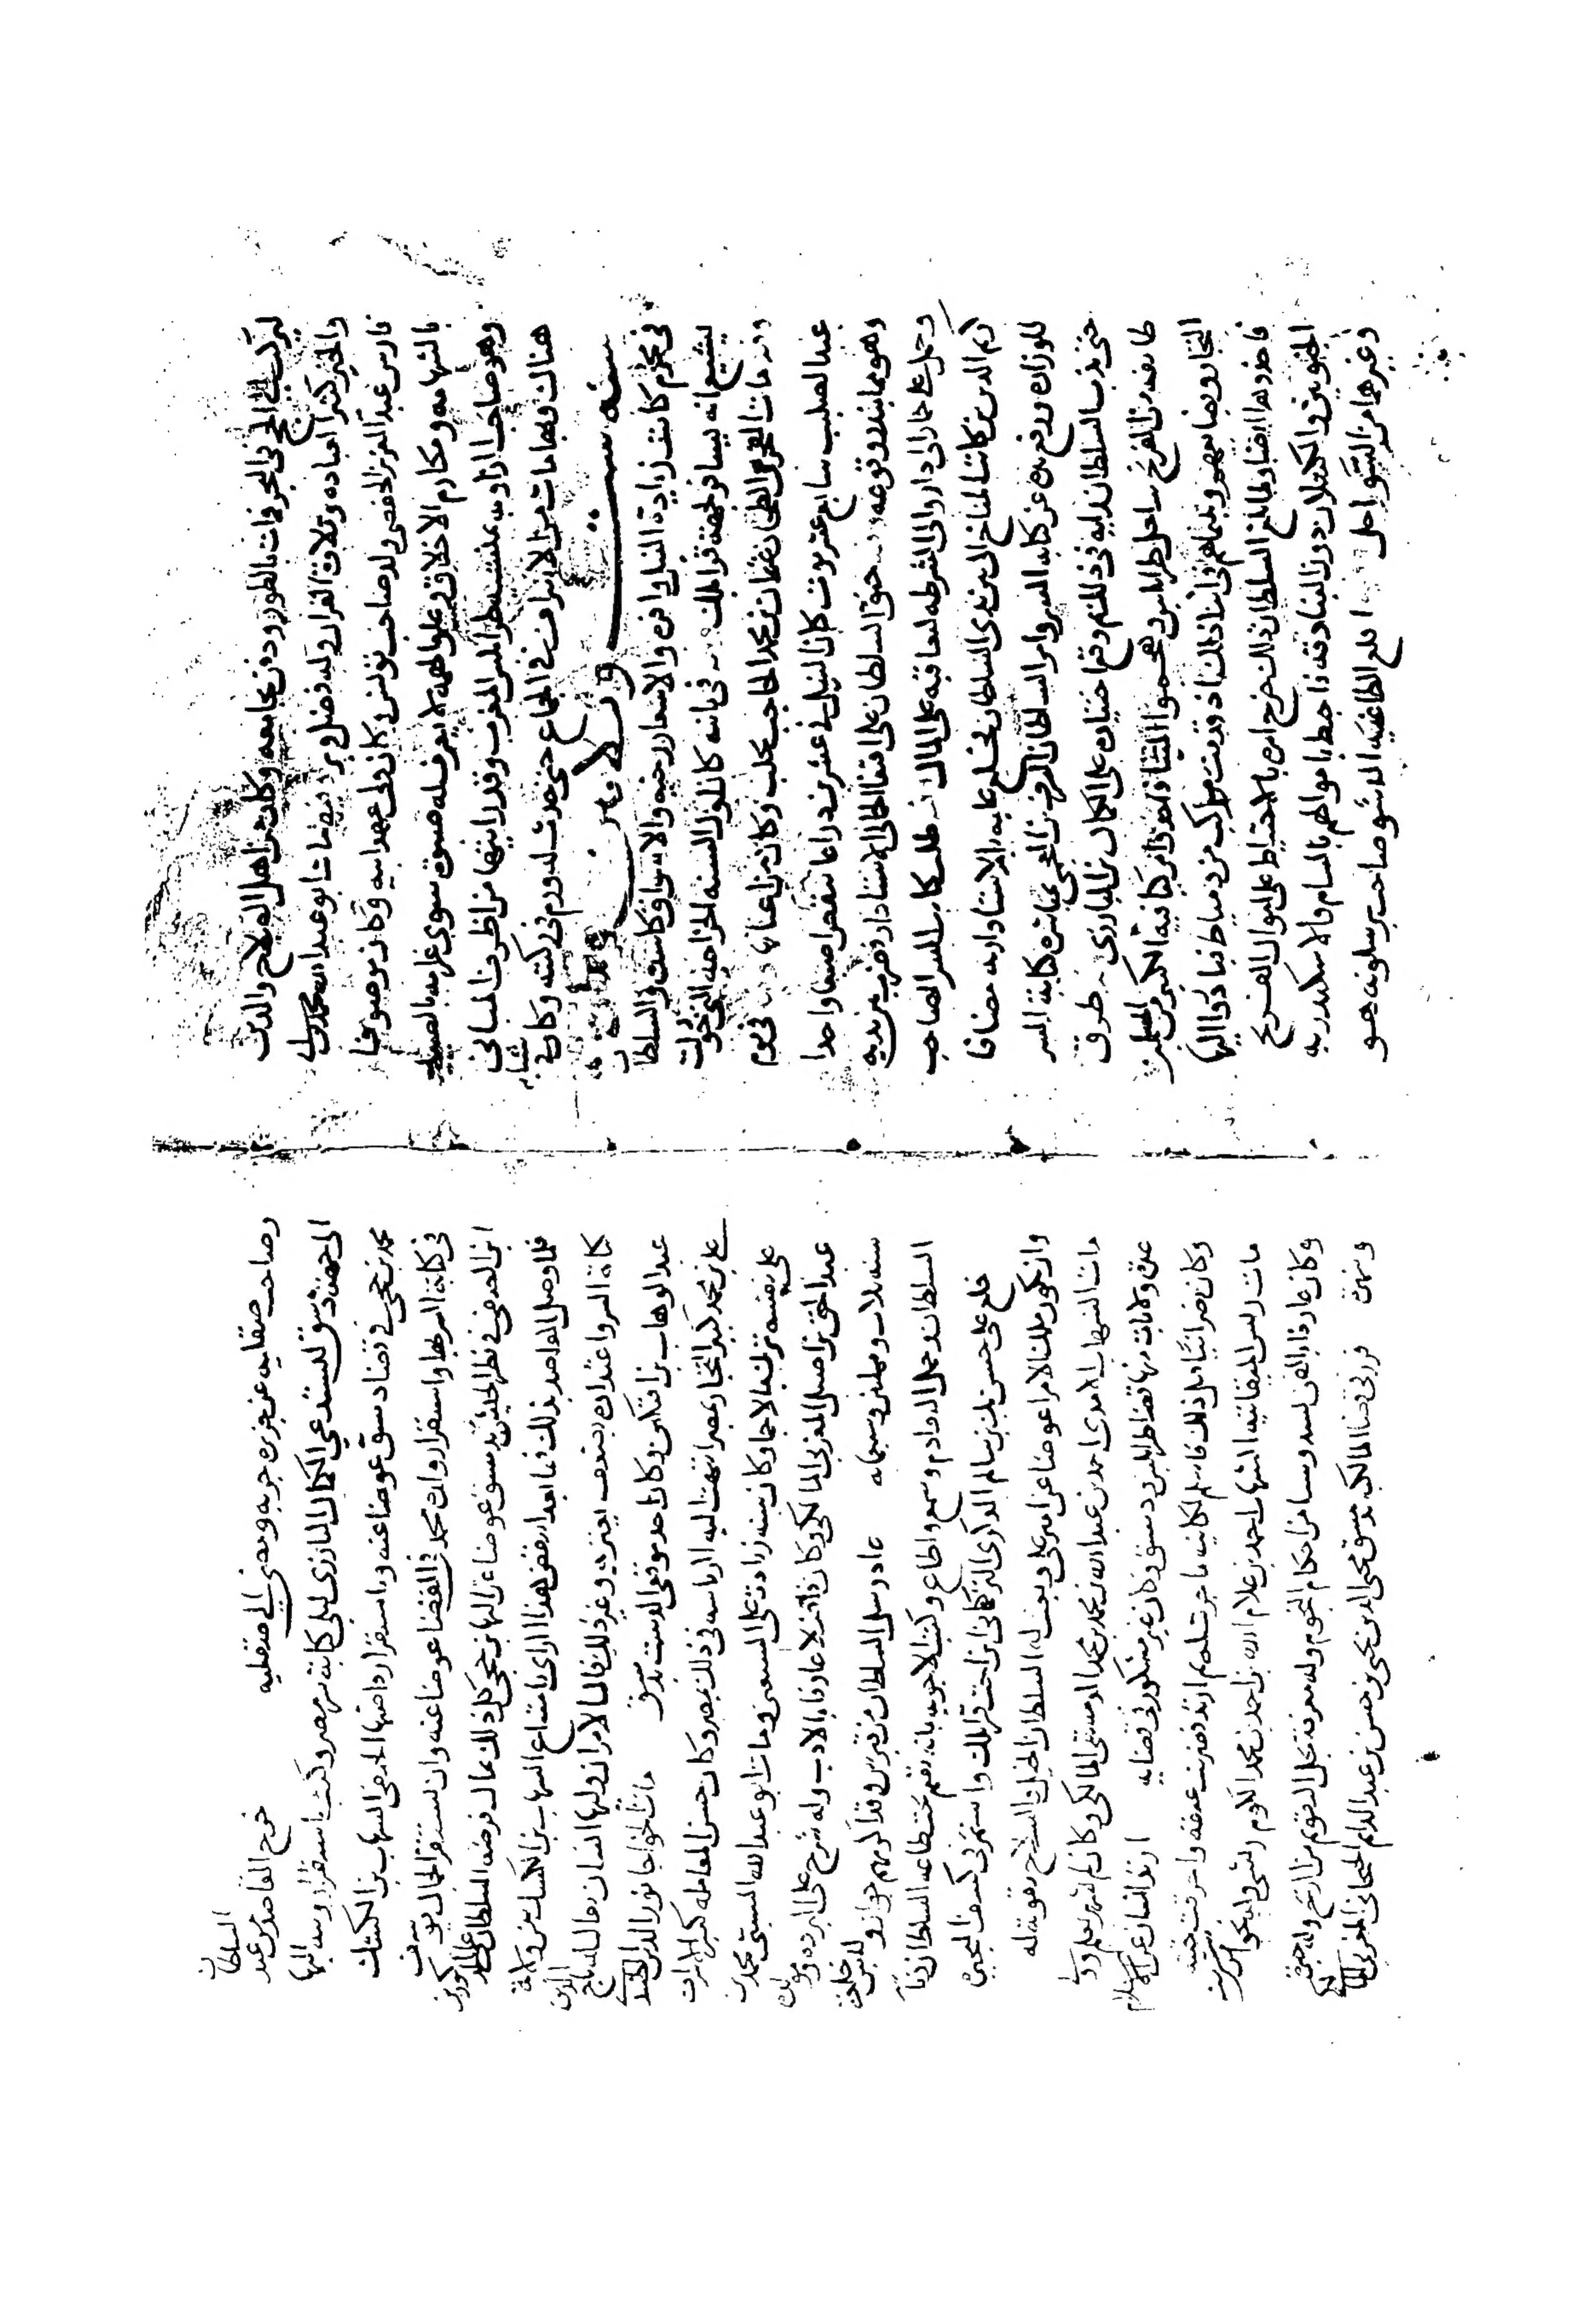 ليركب الى الحج في البحر فمات بالطور ودفن بجامعه وكان من اهل الفلاح والدين
والخير كثير العباده وتلاوة القران وله فضل وبر مات ابو عبد الله محمد ولي
فارس عبد العزيز الحفصي ولد صاحب تونس وكان ولي عهد ابيه وكان موصوفا
بالشهامه ومكارم الاخلاق وعلو الهمه لا يعرف له صبوة سوى غرامه بالصيد
وهو صاحب الراويه على شط المغرب وقد رايتها من اظرف المباني
هناك وبها مات من الاسراف في الجماع حتى حدث له ورم في وكان في
سنه ست وثلاثين وثمان مايه
في محرم كانت زيادة النيل وافره والاسعار رخيه والاسواق كاسده والسلطان
يشيع انه يسافر لجهة قرابلك في مايته كان تحويل السنه الخراجيه التي حولت
مات الفخر الطحان عثمان بن محمد الحاجب بحلب وكان من اعيانها في يوم
عيد الصليب سابع عشر توت كان النيل في عشرين ذراعا تنقص اصبعا واحدا
وهو مما يندر وقوعه حنق السلطان على اقبغا الجمالي الاستادار فضرب بين يديه
وحمل على حمار الى دار والى الشرطه ليعاقبه على المال طلب كاتب السر الصاحب
كريم الدين بن كاتب المناخ الى بين يدى السلطان فخلع عليه الاستاداريه مضافا
للوزارة ورفع يده عن كتابه السر وامر السلطان الشرف بن العجمي بمباشرة كتابة السر
حتى يذب السلطان رايه في ذلك ثم وقع اختياره على الكمال بن البارزي طرق
طايفه من الفرنج ساحل طرابلس وهجموا الميناء واخذوا مركبا فيه الكثير من المسلمين
التجار وبضايعهم وبينما هم في اثنا ذلك اذ قدمت مركب من دمياط فبادروا اليها
فاخذوها ايضا ولما بلغ السلطان ذلك خرج امره بالاحتياط على اموال الفرنج
الجنويين والكتلان دون البنادقه فاحيط باموالهم بالشام والاسكندريه
وغيرهما من السواحل اقلع الطاغيه الاشو صاحب برسلونه هو
وصاحب صقليه عن جزيره جربه ومضى الى صقليه خرج القاصد من عند السلطان
الى جهة دمشق ليستدعي الكمال البارزى ليلي كتابة سر مصر وكتب باستقرار السيد البها
محمد بن حجي في قضاء دمشق عوضا عنه وباستقرار قاضيها الحنفي الشهاب بن الكشك
في كتابة السر بها واستقرار ولده محمد في القضا عوضا عنه وان يستقر الجمال يوسف
ابن الصفي في نظر الجيش بدمشق عوضا عن البها بن حجي كل ذلك بمال فرضه السلطان على المذكورين
فلما وصل القاصد بذلك فما بعد ان نقض هذا الراي بامتناع الشهاب بن الكشك من ولاية
كتابة السر واعتذاره بضعف بصره وغير ذلك فال الامر ان وليها انسان بمال تاج الدين
عبد الوهاب بن افتكين وكان احد موقعي الدست بدمشق مات الخواجا نور الدين الطنبدي
علي بن محمد كبير التجار بمصر انتهت اليه الرياسه في ذلك بمصر وكان حسن المعامله كثير الاسراف
على نفسه ترك مالا جما وكان سنه زيادة على السبعين ومات ابو عبد الله السبتي محمد بن
عبد الحق بن اصيل المغربي المالكي وكان فاضلا عارفا بالادب وله شرح على البرده ومولده
سنه ثلاث وثمانين وسبعمايه عاد رسل السلطان من قبرس وقد اكرمهم جوان ولبس خلعة
السلطان وحمل القادم وسمع واطاع وكتب الاجوبه بانه مقيم تحت طاعه السلطان
خلع على حسن بك بن سالم الدوكرى التركماني ابن اخت قرايلك واستقر في كشف البحيره
وان يكون ملك الامرا عوضا عن امير علي وبعث له السلطان الخيل والسلاح تقويه له
مات الشهاب الاموى احمد بن عبد الله بن محمد بن محمد الدمشقي المالكي وكان لم يشتهر بعلم وولي
عدة ولايات منها قضا طرابلس ودمشق وكان غير مشكور في قضايه ارتد انسان عن الاسلام
وكان نصرانيا قبل ذلك فاسلم لكاينه ما جرت له ثم ارتد فضربت عنقه واحرقت جثته
مات رئيس الميقاتيه الشهاب احمد بن غلام الله بن احمد بن محمد الكوم ريشي وله نحو الخمسين
وكان عارفا بالفن لسد وسا من احكام النجوم وله معرفة بحل التقويم من الزيج وله جمعيه
وفيه قرر في قضا المالكيه بدمشق محيى الدين يحيى بن حسن بن عبد الدايم الحيحاني المغربي